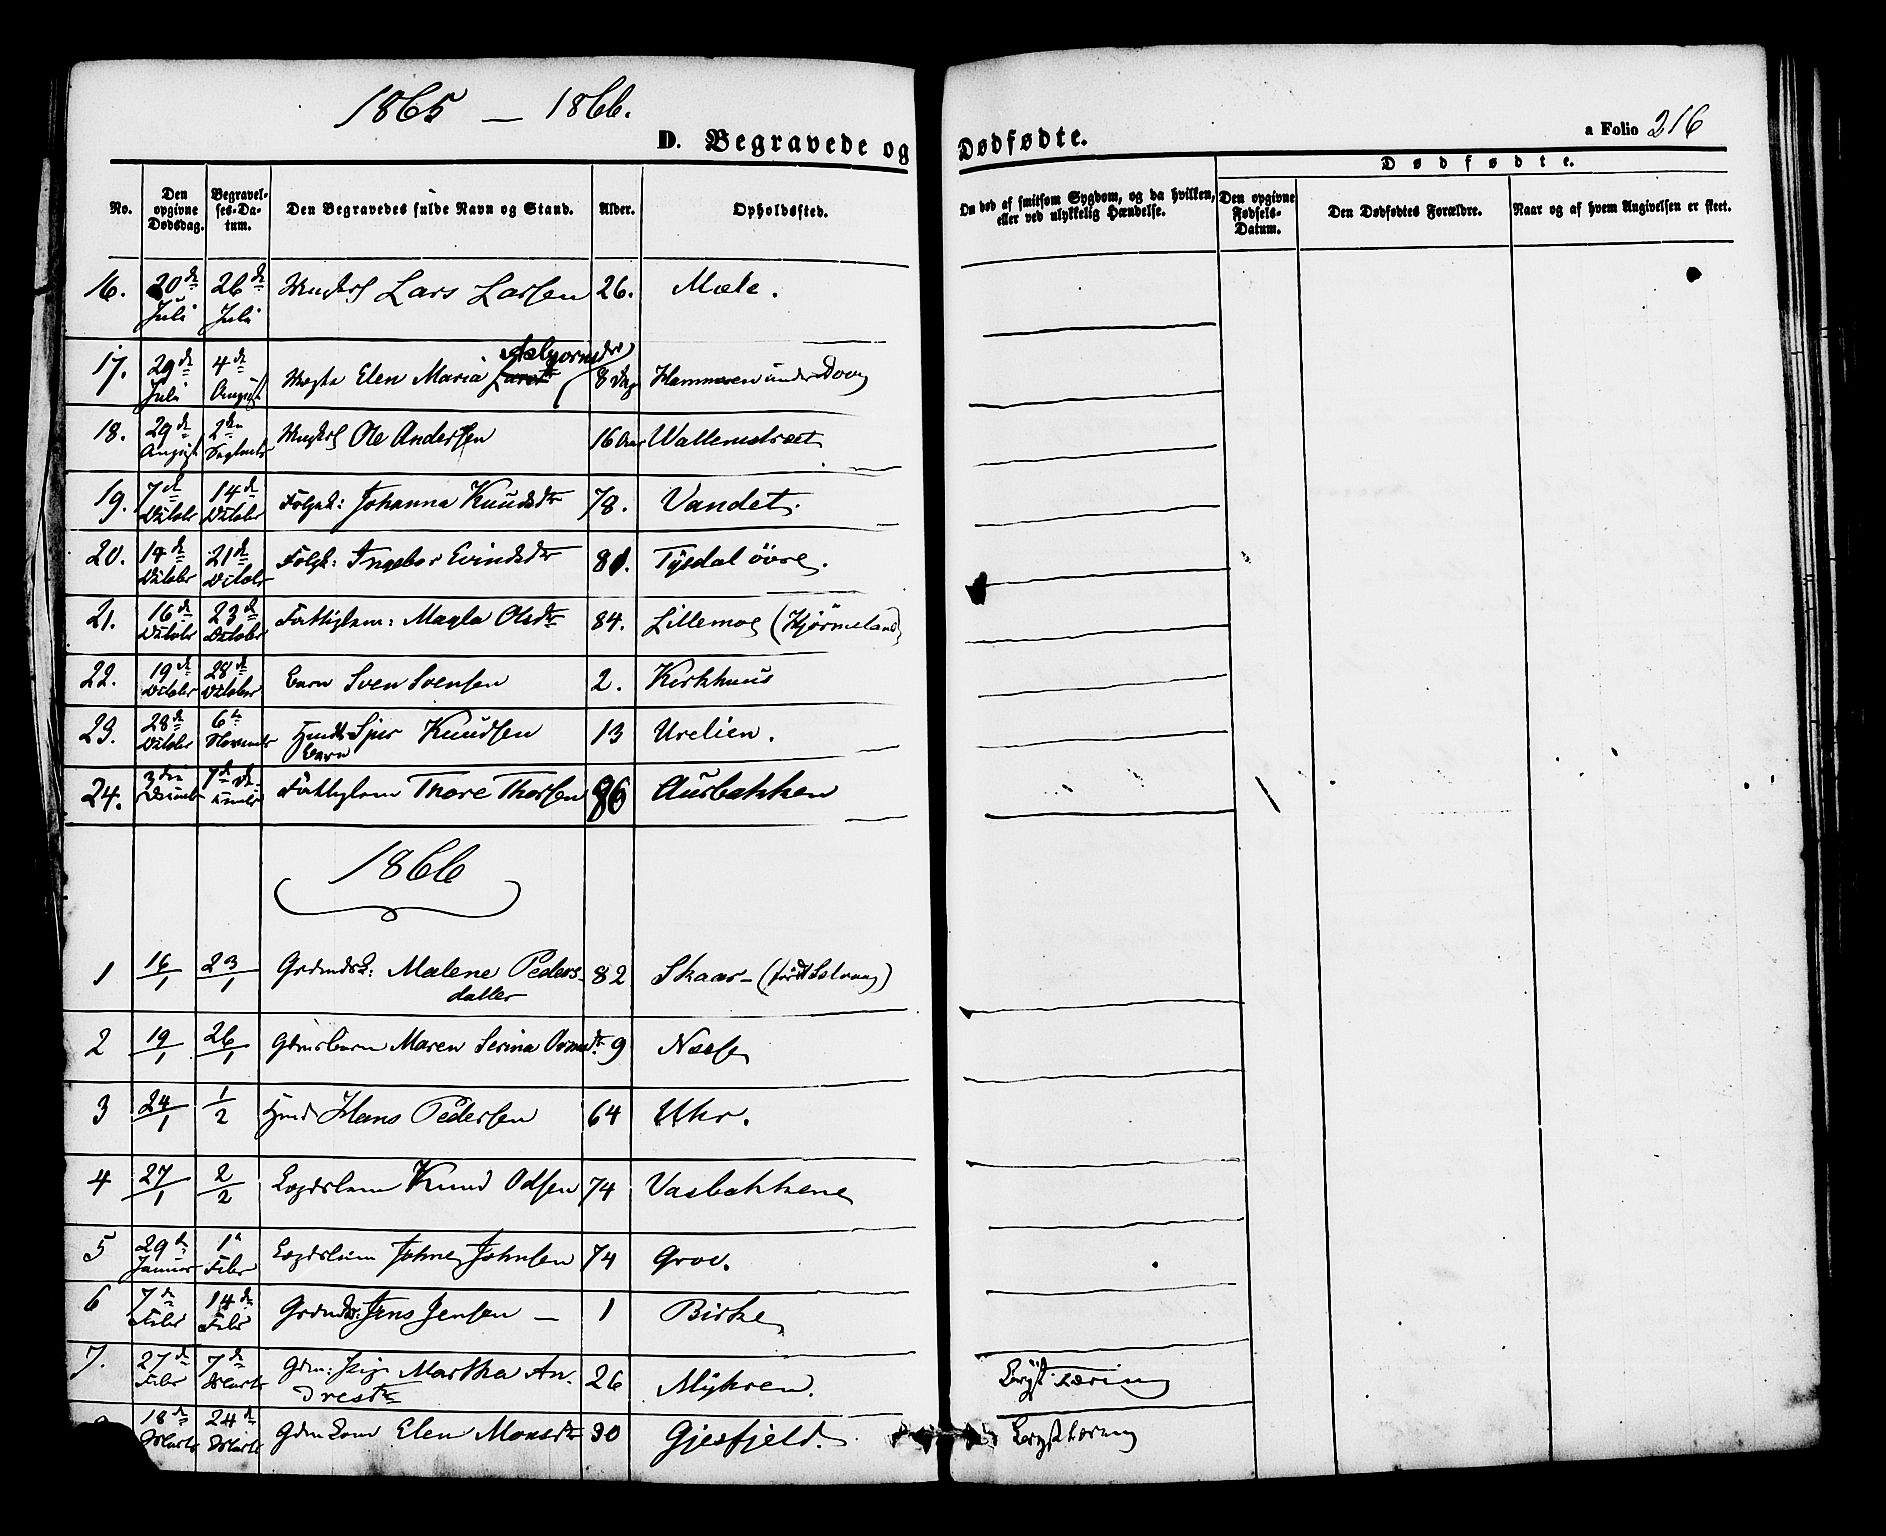 1865 — 1866.
D. Begravede og Dødfødte.
a Folio 216
No.
Den opgivne Dødsdag.
Begravelses-Datum.
Den Begravedes fulde Navn og Stand.
Alder.
Opholdssted.
Om død af smitsom Sygdom, og da hvilken, eller ved ulykkelig Hændelse.
Dødfødte.
Den opgivne Fødsels-Datum.
Den Dødfødtes Forældre.
Naar og af hvem Angivelsen er skeet.
16. 20de Juli 26de Juli Lars Larsen 26. Mæle.
17. 29de Juli 4de August Elen Maria Asbjornsdtr 8 Dag Hammeren under Dovig
18. 29de August 2den Septembr Ole Andersen 16 Aar Wallemstræet
19. 7de Octobr 14de Octobr Johanna Knudsdtr 78. Vandet.
20. 14de Octobr 21de Octobr Ingebor Evindsdtr 81. Tysdal övre.
21. 16de Octobr 23de Octobr Fattiglem: Magla Olsdtr 84. Lillemoe (Kjörmeland)
22. 19de Octobr 28de Octobr barn Sven Svensen 2. Kirkhuus
23. 28de Octobr 6te Novembr Knudsen 13 Urelien.
barn
24. 3die Decembr 7de Decembr Fattiglem Thore Thorsen 86 Aurbakken
1866
1 16/1 23/1 Malene Peders- 82 Skaar - (födt Solvaag)
datter
2 19/1 26/1 Gdmsbarn Maren Serina Ormsdtr. 9 Næse
3 24/1 1/2 Hmd Hans Pedersen 64 Uhr.
4 27/1 2/2 Lægdslem Knud Odsen 74 Vasbakkene
5 29de Januar 1te Febr Lægdslem Johne Johnsen 74 Groe.
6 7de Febr 14de Febr Jens Jensen — 1 Birke
7. 27de Febr 7de Marts Gdm: Pige Martha An- 26 Myhren. Brysttæring
drestr
18de Marts 24de Marts Elen Monsdtr 30 Gjesfjeld. Brysttæring